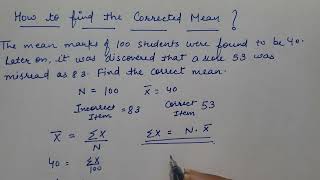 How to find the Corrected Mean ?
The mean marks of 100 students were found to be 40.
Later on, it was discovered that a score 53 was
misread as 83. Find the correct mean.
N = 100 X̄ = 40
Incorrect Item = 83 Correct Item 53
X̄ = ΣX / N ΣX = N . X̄
40 = ΣX / 100